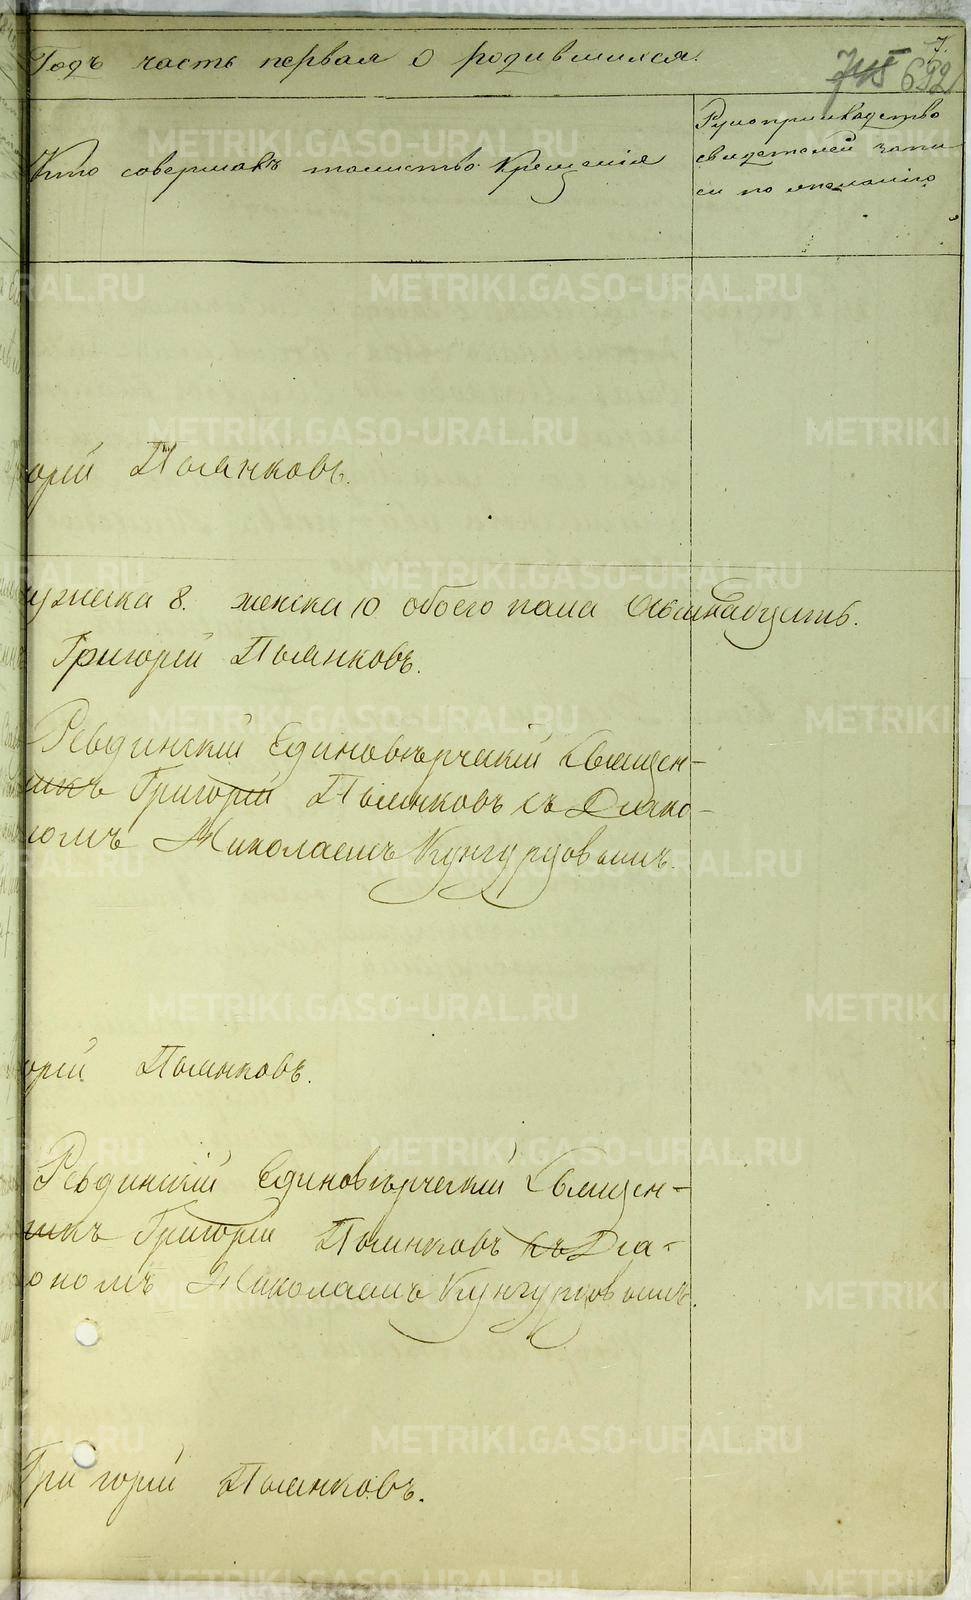 Годъ часть первая о родившихся.
7.
692
Кто совершалъ таинство крещенія
Рукоприкладство
свидетелей запи-
си по желанію
орій Пьянковъ.
ужеска 8. женска 10 обоего пола осьмнадцать.
Григорій Пьянковъ.
Ревдинскій Единоверческій Священ-
никъ Григорій Пьянковъ съ Діако-
номъ Николаемъ Кунгурцовымъ.
орій Пьянковъ.
Ревдинскій Единоверческій Священ-
никъ Григорій Пьянковъ съ Діа-
кономъ Николаемъ Кунгурцовымъ.
Григорій Пьянковъ.
METRIKI.GASO-URAL.RU